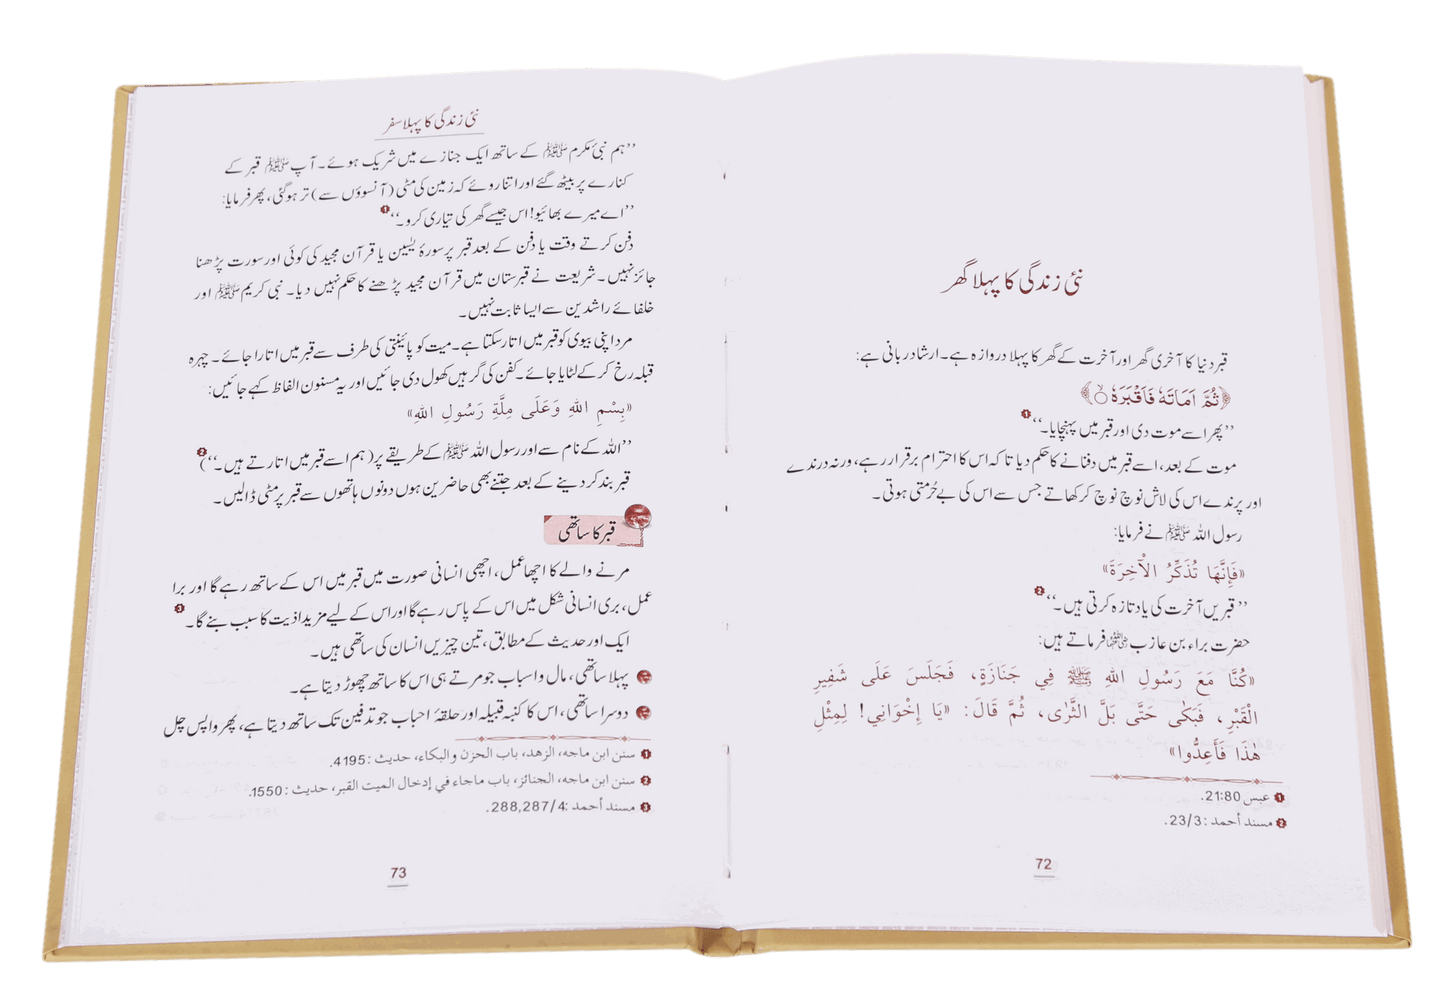 نئی زندگی کا پہلا گھر
قبر دنیا کا آخری گھر اور آخرت کے گھر کا پہلا دروازہ ہے۔ ارشاد ربانی ہے:
﴿ثُمَّ اَمَاتَهٗ فَاَقْبَرَهٗ ۝﴾
’’پھر اسے موت دی اور قبر میں پہنچایا۔‘‘ 1
موت کے بعد، اسے قبر میں دفنانے کا حکم دیا تا کہ اس کا احترام برقرار رہے، ورنہ درندے
اور پرندے اس کی لاش نوچ نوچ کر کھاتے جس سے اس کی بے حُرمتی ہوتی۔
رسول اللہ ﷺ نے فرمایا:
«فَإِنَّهَا تُذَكِّرُ الْآخِرَةَ»
’’قبریں آخرت کی یاد تازہ کرتی ہیں۔‘‘ 2
حضرت براء بن عازب فرماتے ہیں:
«كُنَّا مَعَ رَسُولِ اللهِ ﷺ فِي جَنَازَةٍ، فَجَلَسَ عَلَى شَفِيرِ
الْقَبْرِ، فَبَكَى حَتَّى بَلَّ الثَّرَى، ثُمَّ قَالَ: «يَا إِخْوَانِي! لِمِثْلِ
هٰذَا فَأَعِدُّوا»
1 عبس 21:80.
2 مسند أحمد: 23/3.
72
نئی زندگی کا پہلا سفر
’’ہم نبیٔ مکرم ﷺ کے ساتھ ایک جنازے میں شریک ہوئے۔ آپ ﷺ قبر کے
کنارے پر بیٹھ گئے اور اتنا روئے کہ زمین کی مٹی (آنسوؤں سے) تر ہوگئی، پھر فرمایا:
’’اے میرے بھائیو! اس جیسے گھر کی تیاری کرو۔‘‘ 1
دفن کرتے وقت یا دفن کے بعد قبر پر سورۂ یٰسین یا قرآن مجید کی کوئی اور سورت پڑھنا
جائز نہیں۔ شریعت نے قبرستان میں قرآن مجید پڑھنے کا حکم نہیں دیا۔ نبی کریم ﷺ اور
خلفائے راشدین سے ایسا ثابت نہیں۔
مرد اپنی بیوی کو قبر میں اتار سکتا ہے۔ میت کو پائینتی کی طرف سے قبر میں اتارا جائے۔ چہرہ
قبلہ رخ کر کے لٹایا جائے۔ کفن کی گرہیں کھول دی جائیں اور یہ مسنون الفاظ کہے جائیں:
«بِسْمِ اللهِ وَعَلَى مِلَّةِ رَسُولِ اللهِ»
’’اللہ کے نام سے اور رسول اللہ ﷺ کے طریقے پر (ہم اسے قبر میں اتارتے ہیں۔‘‘) 2
قبر بند کر دینے کے بعد جتنے بھی حاضرین ہوں دونوں ہاتھوں سے قبر پر مٹی ڈالیں۔
قبر کا ساتھی
مرنے والے کا اچھا عمل، اچھی انسانی صورت میں قبر میں اس کے ساتھ رہے گا اور برا
عمل، بری انسانی شکل میں اس کے پاس رہے گا اور اس کے لیے مزید اذیت کا سبب بنے گا۔ 3
ایک اور حدیث کے مطابق، تین چیزیں انسان کی ساتھی ہیں۔
پہلا ساتھی، مال و اسباب جو مرتے ہی اس کا ساتھ چھوڑ دیتا ہے۔
دوسرا ساتھی، اس کا کنبہ قبیلہ اور حلقۂ احباب جو تدفین تک ساتھ دیتا ہے، پھر واپس چل
1 سنن ابن ماجه، الزهد، باب الحزن والبكاء، حديث: 4195.
2 سنن ابن ماجه، الجنائز، باب ماجاء في إدخال الميت القبر، حديث: 1550.
3 مسند أحمد: 288,287/4.
73